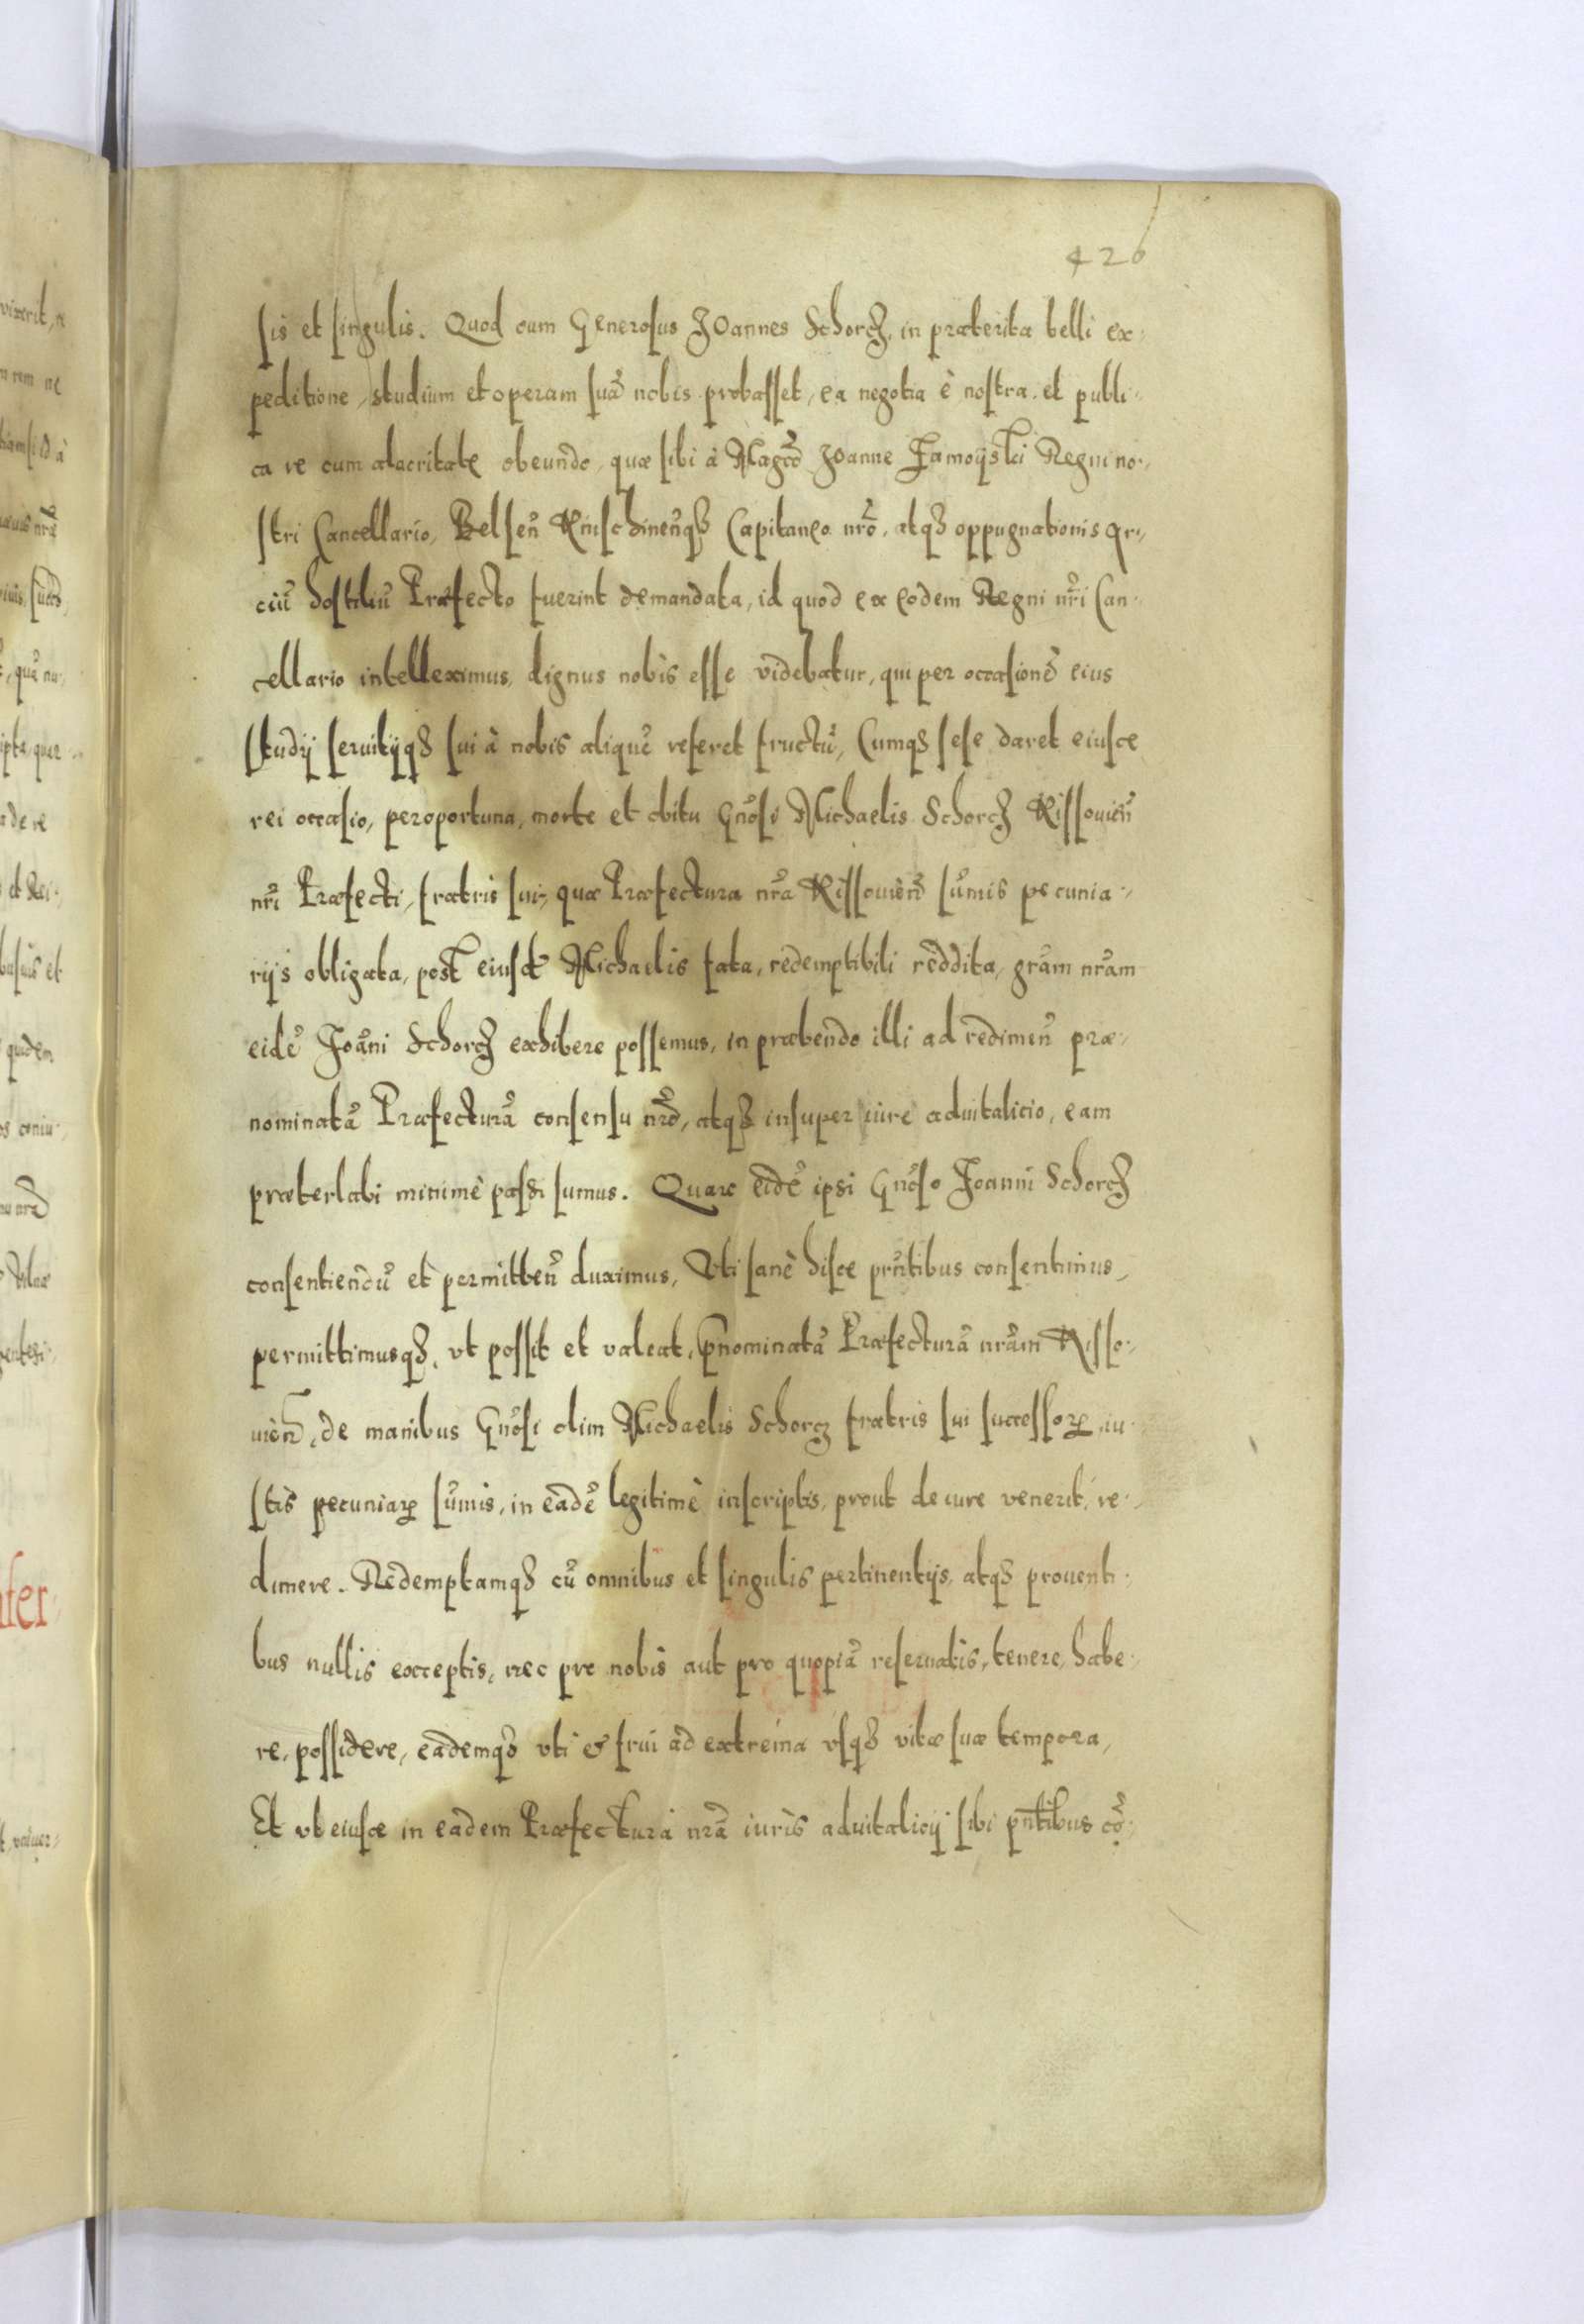 420
sis et singulis. Quod cum Generosus Joannes Schorcz, in præterita belli ex-
peditione, studium et operam suã nobis probasset, ea negotia è nostra et publi-
ca re cum alacritate obeundo, quæ sibi à Mag͂co Joanne Zamoijski Regni no-
stri Cancellario, Belsen̄ Knischinen̄qꝫ Capitaneo nr̄o, atqꝫ oppugnationis Ar-
ciũ hostiliũ Præfecto fuerint demandata, id quod ex eodem Regni nr̄i Can-
cellario intelleximus, dignus nobis esse videbatur, qui per occasionẽ eius
studij seruitijqꝫ sui à nobis aliquẽ referet fructũ, Cumqꝫ sese daret eiusce
rei occasio, peroportuna, morte et obitu Gn̄osi Michaelis Schorcz Rissouien̄
nr̄i Præfecti, fratris sui, quæ Præfectura nr̄a Rissouien̄ sũmis pecunia-
rijs obligata, post eiusd̄ Michaelis fata, redemptibili reddita, gr̄am nr̄am
eidẽ Joãni Schorcz exhibere possemus, in præbendo illi ad redimen̄ præ-
nominatã Præfecturã consensu nr̄o, atqꝫ insuper iure aduitalitio, eam
præterlabi minimè passi sumus. Quare eidẽ ipsi Gn̄oso Joanni Schorcz
consentiendũ et permitten̄ duximus, Uti sanè hisce pr̄ntibus consentimus,
permittimusqꝫ, vt possit et valeat, p̄nominatã Præfecturã nr̄am Risso-
uien̄, de manibus Gn̄osi olim Michaelis Schorcz fratris sui successorꝝ, iu-
stis pecuniarꝝ sũmis, in eadẽ legitimè inscriptis, prout de iure venerit, re-
dimere. Redemptamqꝫ cũ omnibus et singulis pertinentijs, atqꝫ prouenti-
bus nullis exceptis, nec pro nobis aut pro quopiã reseruatis, tenere, habe-
re, possidere, eademqꝫ vti & frui ad extrema vsqꝫ vitæ suæ tempora,
Et vt eiusce in eadem Præfectura nr̄a iuris aduitalicij sibi pn̄tibus cõ-